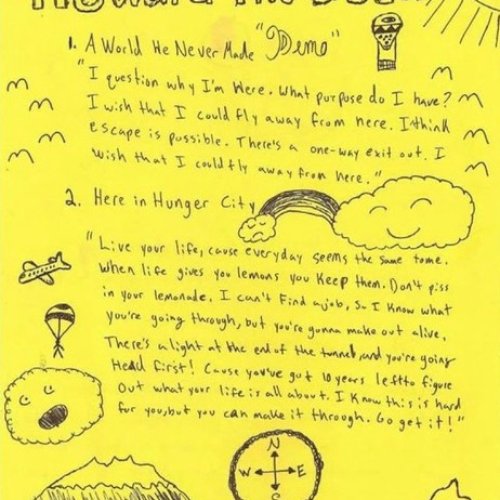 1. A World He Never Made "Demo"
"I question why I'm Here. What purpose do I have?
I wish that I could fly away from here. I think
escape is possible. There's a one-way exit out. I
wish that I could fly away from here."
2. Here in Hunger City
"Live your life, cause everyday seems the same to me.
When life gives you lemons you Keep them. Don't piss
in your lemonade. I can't Find a job, So I Know what
you're going through, but you're gunna make out alive.
There's a light at the end of the tunnel, and you're going
Head first! Cause you've got 10 years left to figure
Out what your life is all about. I Know this is hard
for you, but you can make it through. Go get it!"
N
W E
S